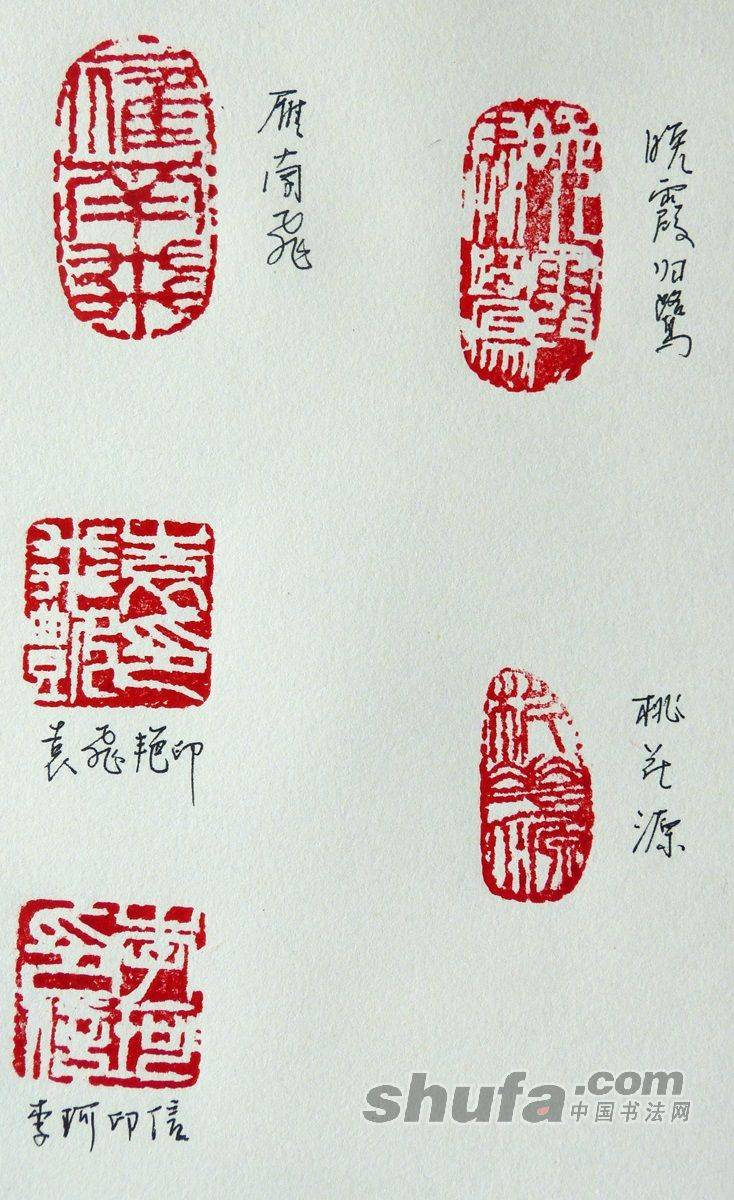 雁南飞
晚霞归鹭
袁飞艳印
桃花源
李珂印信
shufa.com
中国书法网